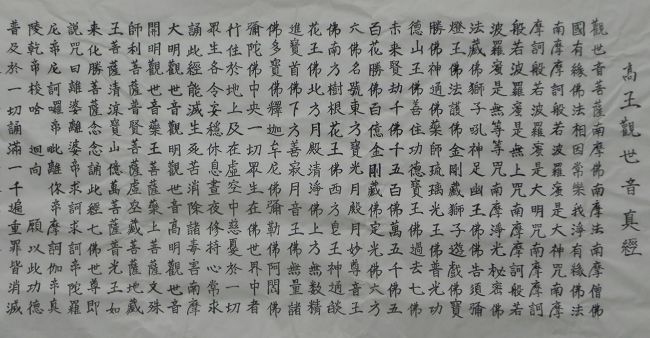 高王觀世音真經
觀世音菩薩南摩佛南摩法南摩僧佛
國有緣佛法相因常樂我淨有緣佛法
南摩摩訶般若波羅蜜是大神咒南摩
摩訶般若波羅蜜是大明咒南摩摩訶
般若波羅蜜是無上咒南摩摩訶般若
波羅蜜是無等等咒南摩淨光秘密佛
法藏佛獅子吼神足幽王佛佛告須彌
燈王佛法護佛金剛藏獅子遊戲佛寶
勝佛神通佛藥師琉璃光王佛普光功
德山王佛善住功德寶王佛過去七佛
未來賢劫千佛千五百佛萬五千佛五
百花勝佛百億金剛藏佛定光佛六方
六佛名號東方寶光月殿月妙尊音王
佛南方樹根花王佛西方皂王神通燄
花王佛北方月殿清淨佛上方無數精
進寶首佛下方善寂月音王佛無量諸
佛多寶佛釋迦牟尼佛彌勒佛阿閦佛
彌陀佛中央一切眾生在佛世界中者
行住於地上及在虛空中慈憂於一切
眾生各令安穩休息晝夜修持心常求
誦此經能滅生死苦消除諸毒害南摩
大明觀世音觀明觀世音高明觀世音
開明觀世音藥王菩薩藥上菩薩文殊
師利菩薩普賢菩薩虛空藏菩薩地藏
王菩薩清涼寶山億萬菩薩普光王如
來化勝菩薩念念誦此經七佛世尊即
說咒曰離婆離婆帝求訶求訶帝陀羅
尼帝尼訶囉帝毗離你帝摩訶伽帝真
陵乾帝梭哈 迴向 願以此功德
普及於一切誦滿一千遍重罪皆消滅